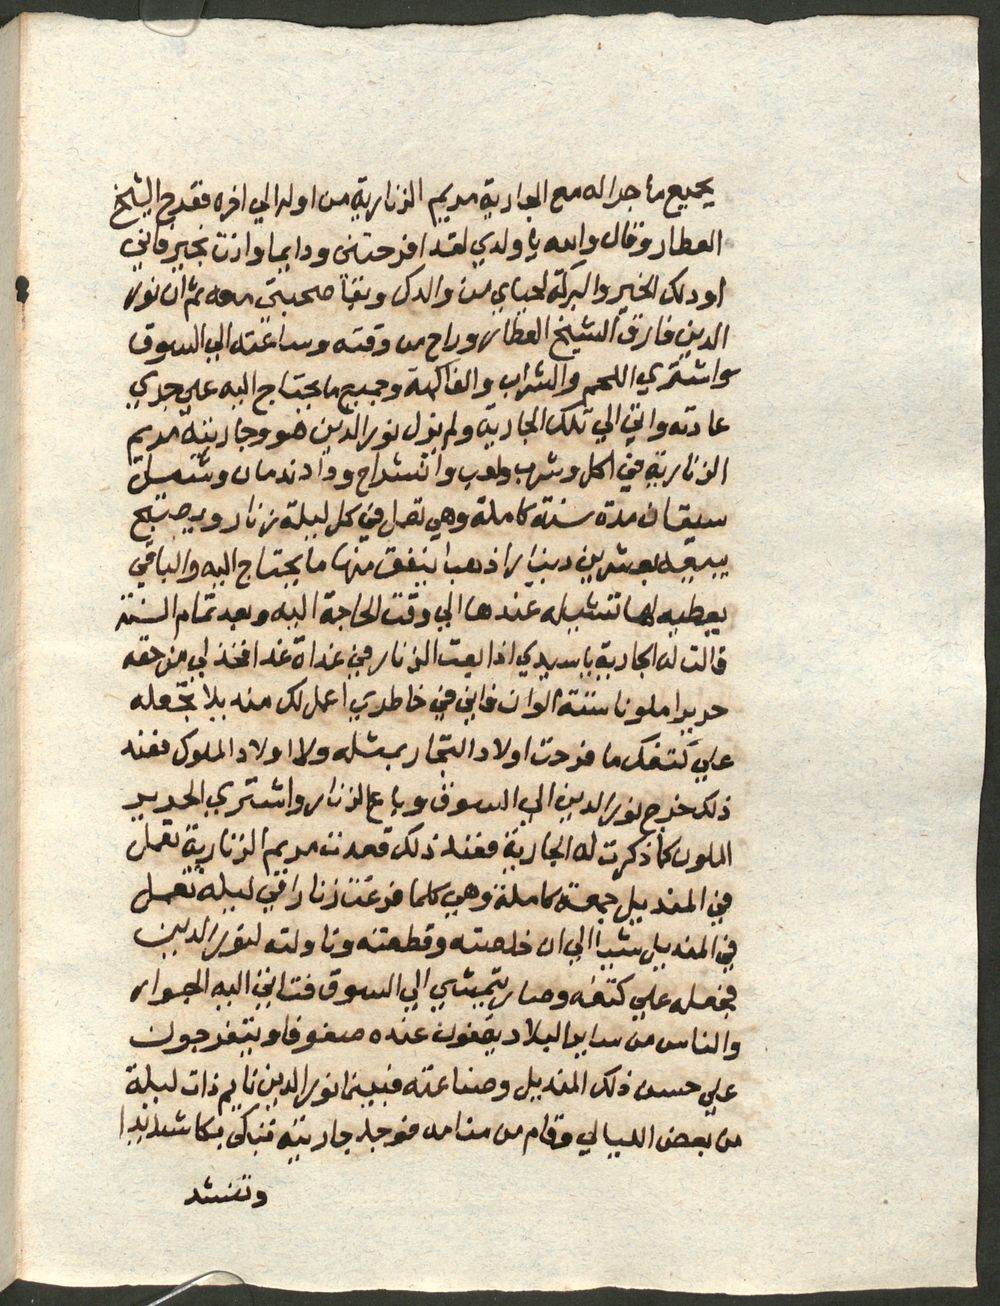 بجميع ما جراله مع الجارية مريم الزنارية من اوله الي اخره ففرح الشيخ
العطار وقال والله يا ولدي لقد افرحتني ودايما وانت بخير فاني
اود لك الخير والبركة لحيااي من والدك وبقيا صحبتي معه ثم ان نور
الدين فارق الشيخ العطار وراح من وقته وساعته الي السوق
واشتري اللحم والشراب والفاكهة وجميع ما يحتاج اليه علي جري
عادته واتي الي تلك الجارية ولم يزل نور الدين هو وجاريته مريم
الزنارية في اكل وشرب ولعب وانشراح ووداد ندمان وشمل
سيقان مدة سنة كاملة وهي تعمل في كل ليلة زنار ويصبح
يبيعه بعشرين دينارا ذهبا ينفق منها ما يحتاج اليه والباقي
يعطيه لها تشيله عندها الي وقت الحاجة اليه وبعد تمام السنة
قالت له الجارية يا سيدي اذا بعت الزنار في غداة غد افخذ لي من حقه
حريرا ملونا ستة الوان فاني في خاطري اعمل لك منديلا تجعله
علي كتفك ما فرحت اولاد التجار بمثله ولا اولاد الملوك فعند
ذلك خرج نور الدين الي السوق وباع الزنار واشتري الحرير
الملون كما ذكرت له الجارية فعند ذلك قعدت مريم الزنارية تعمل
في المنديل جمعة كاملة وهي كلما فرغت زنارا في ليلة تعمل
في المنديل شيا الي ان خلصته وقطعته وناولته لنور الدين
فجعله علي كتفه وصار يتمشي الي السوق فتاتي اليه الجوار
والناس من ساير البلاد يقفون عنده صفوفا ويتفرجون
علي حسن ذلك المنديل وصناعته فبينما نور الدين نايم ذات ليلة
من بعض الليالي وقام من منامه فوجد جاريته تبكي بكا شديدا
وتنشد